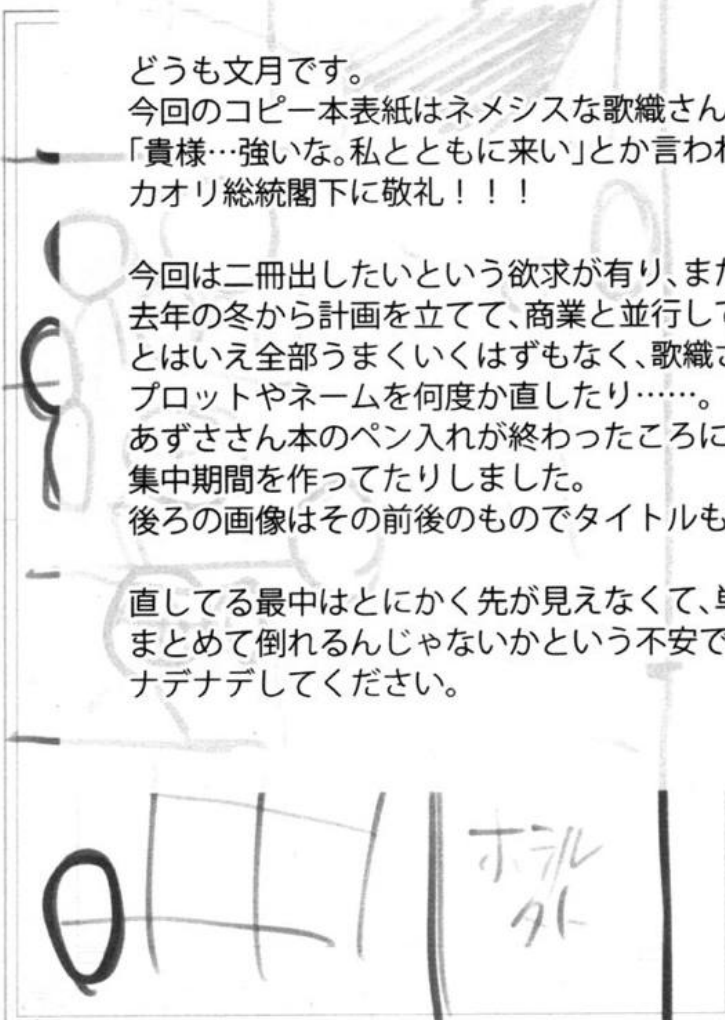 どうも文月です。
今回のコピー本表紙はネメシスな歌織さん
「貴様…強いな。私とともに来い」とか言われ
カオリ総統閣下に敬礼！！！
今回は二冊出したいという欲求が有り、また
去年の冬から計画を立てて、商業と並行して
とはいえ全部うまくいくはずもなく、歌織さ
プロットやネームを何度か直したり……。
あずささん本のペン入れが終わったころに
集中期間を作ってたりしました。
後ろの画像はその前後のものでタイトルも
直してる最中はとにかく先が見えなくて、単
まとめて倒れるんじゃないかという不安で
ナデナデしてください。
ホテル
外